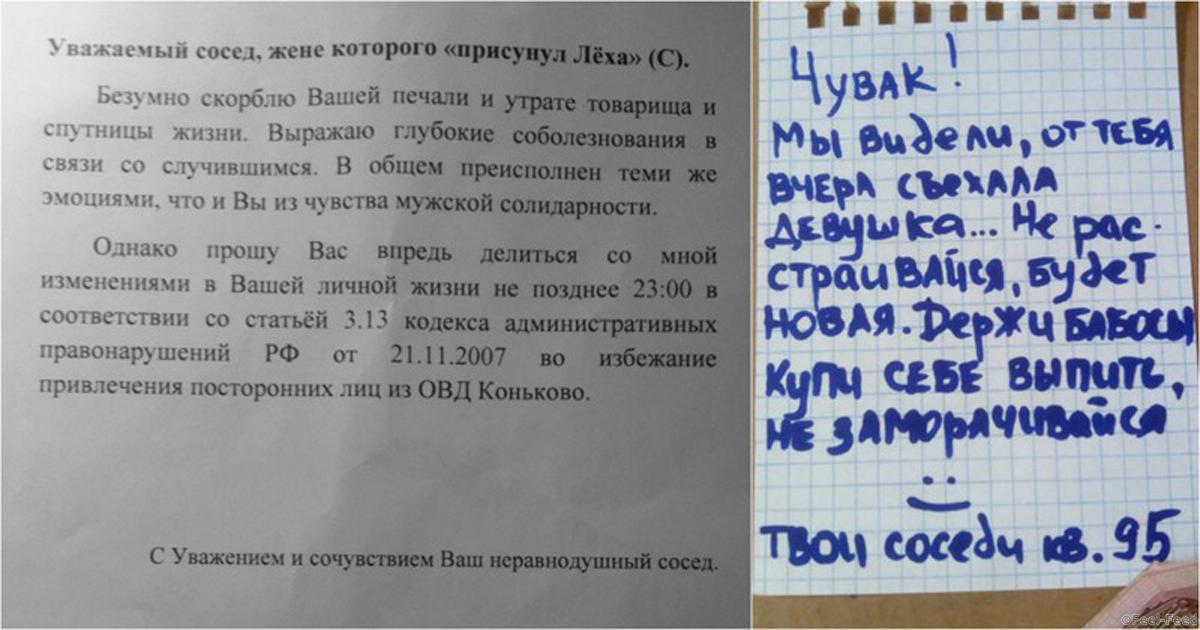 Уважаемый сосед, жене которого «присунул Лёха» (С).
Безумно скорблю Вашей печали и утрате товарища и
спутницы жизни. Выражаю глубокие соболезнования в
связи со случившимся. В общем преисполнен теми же
эмоциями, что и Вы из чувства мужской солидарности.
Однако прошу Вас впредь делиться со мной
изменениями в Вашей личной жизни не позднее 23:00 в
соответствии со статьёй 3.13 кодекса административных
правонарушений РФ от 21.11.2007 во избежание
привлечения посторонних лиц из ОВД Коньково.
С Уважением и сочувствием Ваш неравнодушный сосед.
Чувак!
Мы видели, от тебя
вчера съехала
девушка... Не рас-
страивайся, будет
новая. Держи бабосы
купи себе выпить,
не заморачивайся
твои соседи кв. 95
©Feel-Feed